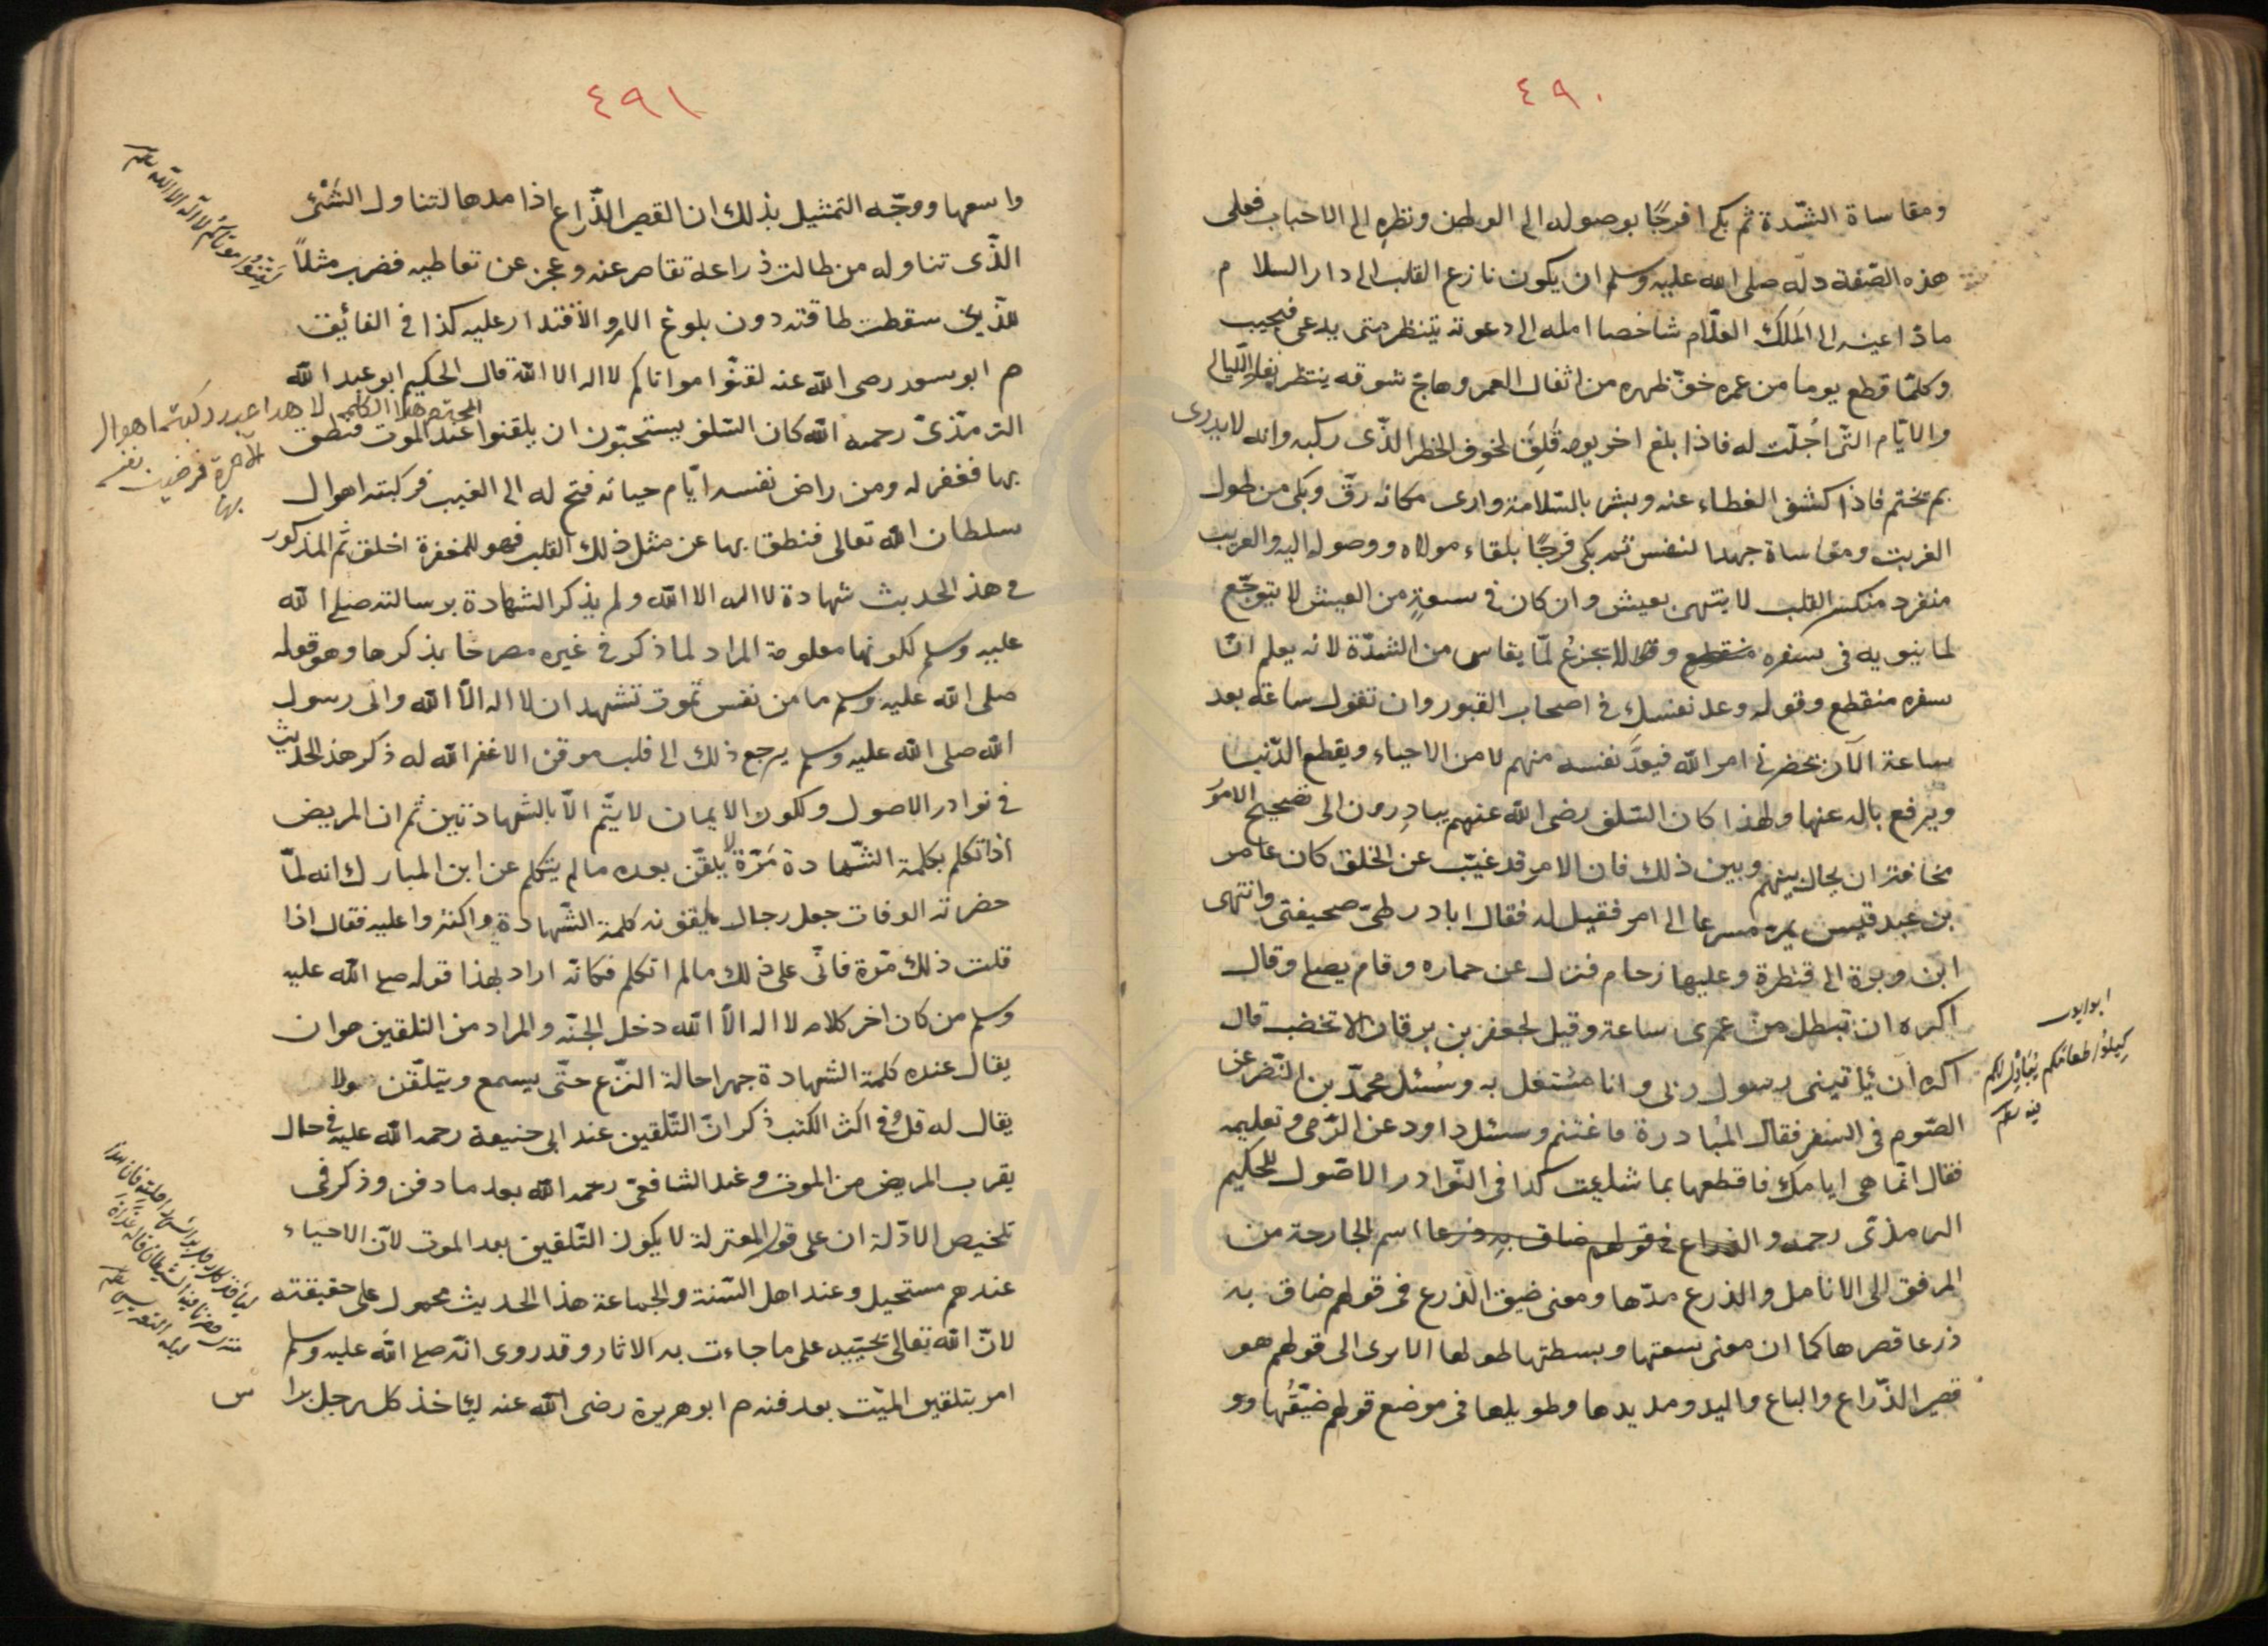 ٤٩٠
ومقاساة الشّدة ثم بكى فرحًا بوصوله الى الوطن ونظره الى الاحباب فعلى
هذه الصّفة دلّه صلى الله عليه وسلم ان يكون نازع القلب الى دار السلام
مادّا عينه الى المَلك العلّام شاخصا امله الى دعوته ينتظر متى يدعى فيجيب
وكلّما قطع يوما من عمره خفّ ظهره من اثقال العمر وهاج شوقه ينتظر نفاد اللّيالى
والايّام الّتى اُجّلت له فاذا بلغ اخر يومه قَلِقَ لخوف الخطر الذّى ركبه وانه لا يدرى
بم يختم فاذا كشف الغطاء عنه وبشر بالسّلامة وارى مكانه رقّ وبكى من طول
الغربت ومقاساة جهد النفس ثم بكى فرحًا بلقاء مولاه ووصوله اليه والغريب
منفرد منكسر القلب لا يتهنى بعيش وان كان فى سعةٍ من العيش لا يتوجّع
لما ينوبه فى سفره ولا يجزعُ لمّا يقاسى من الشدّة لانه يعلم انّ
سفره منقطع وقوله وعد نفسك فى اصحاب القبور وان تقول ساعة بعد
ساعة الآن يحضرنى امر الله فيعدَّ نفسه منهم لا من الاحياء ويقطع الدّنيا
ويرفع باله عنها ولهذا كان السّلف رضى الله عنهم يبادرون الى تصحيح الامور
مخافة ان يحال بينهم وبين ذلك فان الامر قد غيّب عن الخلق كان عامر
بن عبد قيس يمر مسرعا الى امر فقيل له فقال ابادر طىّ صحيفتى وانتهى
ابن وبرة الى قنطرة وعليها زحام فنزل عن حماره وقام يصلى وقال
اكره ان تبطل من عمرى ساعة وقيل لجعفر بن برقان الا تخضب قال
اكره ان يأتينى رسول ربى وانا مشتغل به وسُئل محمّد بن النّضر عن
الصّوم فى السفر فقال المُبادرة فاغتنم وسئل داود عن الرّمى وتعليمه
فقال انّما هى ايامك فاقطعها بما شئت كذا فى النّوادر الاصول للحكيم
الترمذى رحمه والذراع اسم الجارحة من
المرفق الى الانامل والذرع مدّها ومعنى ضيق الذرع فى قولهم ضاق به
ذرعا قصرها كما ان معنى سعتها وبسطتها طولها الا يرى الى قولهم هو
قصير الذّراع والباع واليد ومديدها وطويلها فى موضع قولهم ضيّقُها و
ابو ايوب
كِيلُوا طعامكم يُبَارَك لكم
فيه
٤٩١
واسعها ووجّه التمثيل بذلك ان القصير الذّراع اذا مدها لتناول الشئ
الذّى تناوله من طالت ذراعه تقاصر عنه وعجز عن تعاطيه فضرب مثلاً
للّذى سقطت طاقته دون بلوغ الامر والاقتدار عليه كذا فى الفائق
م ابو سعد رضى الله عنه لقنّوا موتاكم لا اله الا الله قال الحكيم ابو عبد الله
الترمذّى رحمه الله كان السّلف يستحبّون ان يلقنوا عند الموت فنطق
بها فغفر له ومن راض نفسه ايّام حياته فتح له الى الغيب فركبته اهوال
سلطان الله تعالى فنطق بها عن مثل ذلك القلب فهو للمغفرة اخلق ثم المذكور
فى هذ الحديث شهادة لا اله الا الله ولم يذكر الشهادة برسالته صلى الله
عليه وسلم لكونها معلومة المراد لما ذكر فى غيره مصرحا بذكرها وهو قوله
صلى الله عليه وسلم ما من نفس تموت تشهد ان لا اله الّا الله وانى رسول
الله صلى الله عليه وسلم يرجع ذلك الى قلب موقن الا غفر الله له ذكر هذ الحديث
فى نوادر الاصول ولكون الايمان لا يتّم الاّ بالشهادتين ثم ان المريض
اذا تكلم بكلمة الشّهادة مَرّة لا يلقّن بعده مالم يتكلم عن ابن المبارك انه لمّا
حضرته الوفات جعل رجال يلقنونه كلمة الشّهادة واكثروا عليه فقال اذا
قلت ذلك مرّة فانّى على ذلك مالم اتكلم فكانّه اراد بهذا قوله صلى الله عليه
وسلم من كان اخر كلامه لا اله الاّ الله دخل الجنّه والمراد من التلقين هو ان
يقال عنده كلمة الشهادة جهرا حالة النزّع حتّى يسمع ويتلقّن ولا
يقال له قل وفى اكثر الكتب ذكر انّ التّلقين عند ابى حنيفة رحمه الله عليه فى حال
يقرب المريض من الموت وعند الشافعى رحمه الله بعد ما دفن وذكر فى
تلخيص الادّلة ان على قول المعتزلة لا يكون التّلقين بعد الموت لانّ الاحياء
عندهم مستحيل وعند اهل السّنة والجماعة هذ الحديث محمول على حقيقته
لانّ الله تعالى يحييه على ما جاءت به الاثار وقد روى انّه صلى الله عليه وسلم
امر بتلقين الميّت بعد دفنه م ابو هريرة رضى الله عنه ليأخذ كل رجل برا
س
لقِّنُوا موتاكم لا اله الا الله